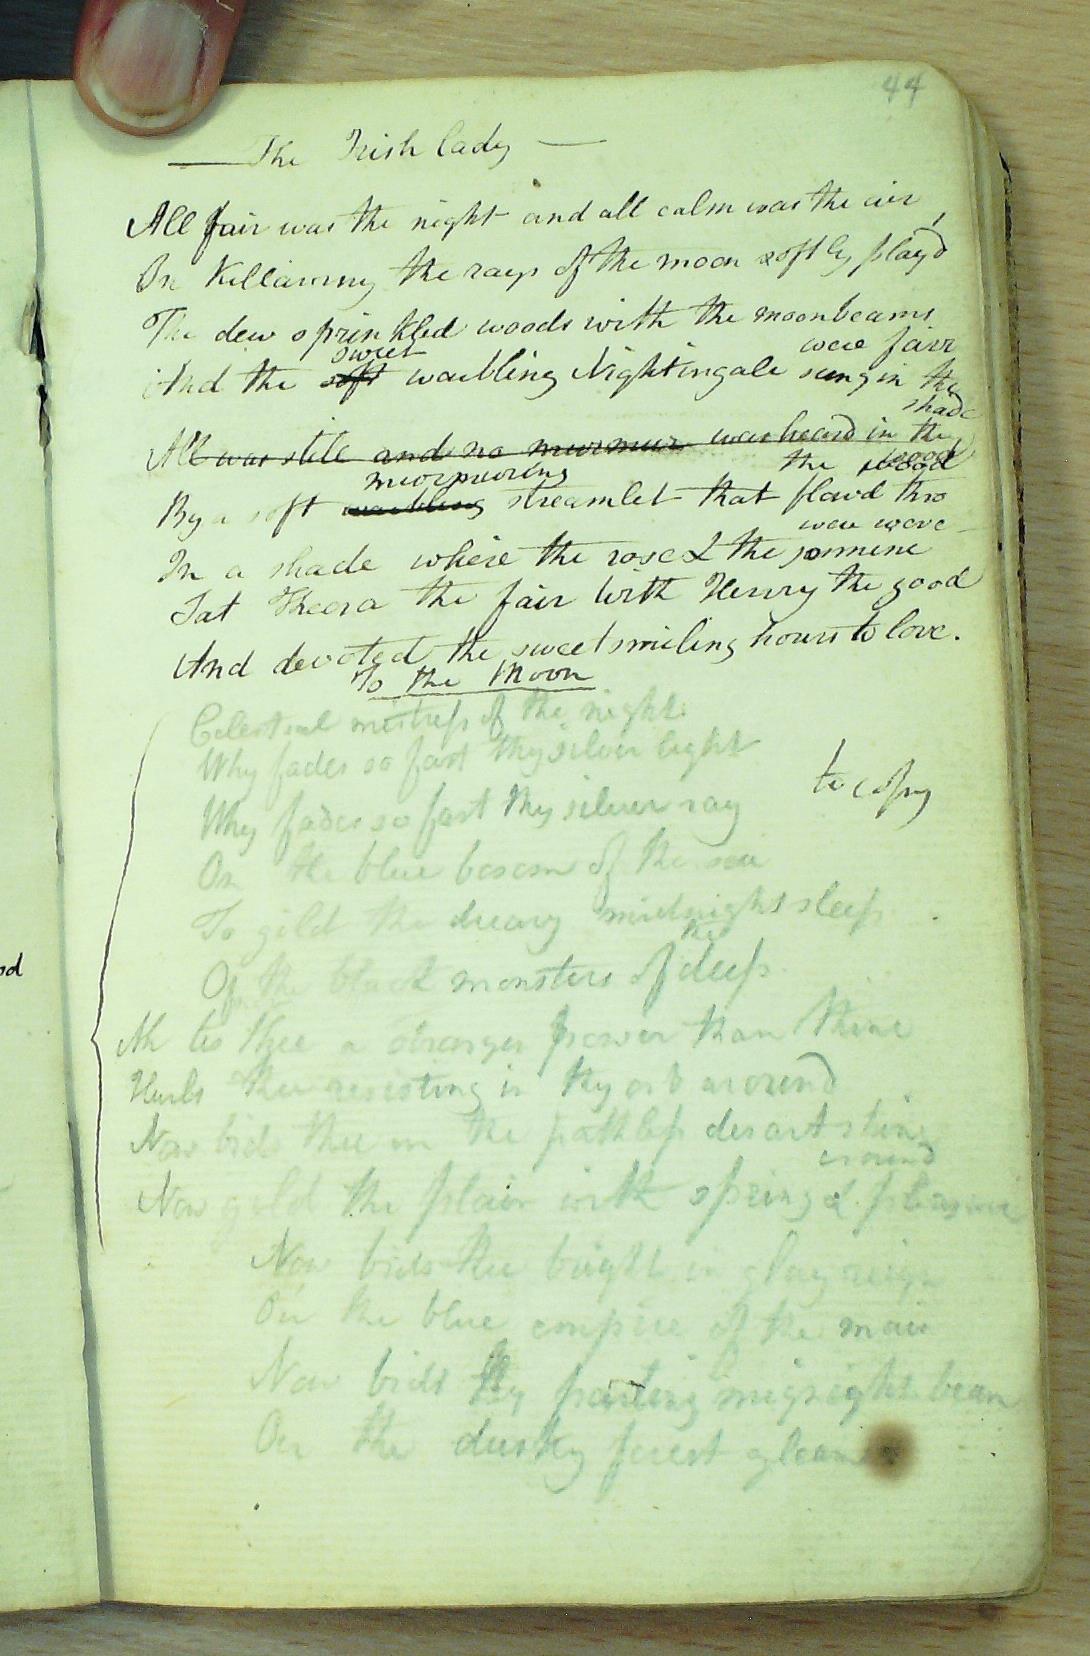 44
The Irish lady
All fair was the night and all calm was the air,
On Killarny the rays of the moon softly play'd
The dew sprinkled woods with the moonbeams were fair
And the soft sweet warbling Nightingale sung in the shade
All was still and no murmur was heard in the wood
By a soft warbling murmuring streamlet that flowd thro the wood
In a shade where the rose & the jasmine were wove
Sat Theora the fair with Henry the good
And devoted the sweet smiling hours to love.
To the Moon
Celestial mistress of the night
Why fades so fast thy silver light
Why fades so fast thy silver ray
to copy
On the blue bosom of the sea
To gild the dreary midnight sleep
Of the black monsters of the deep
Ah tis thee a stronger power than thine
Hurls thee resisting in thy orb around
Now bids thee on the pathless desart shine
Now gild the plain with spring & around
Now bids thee bright in glory reign
On the blue empire of the main
Now bids thy parting beam
On the dusky forest gleam